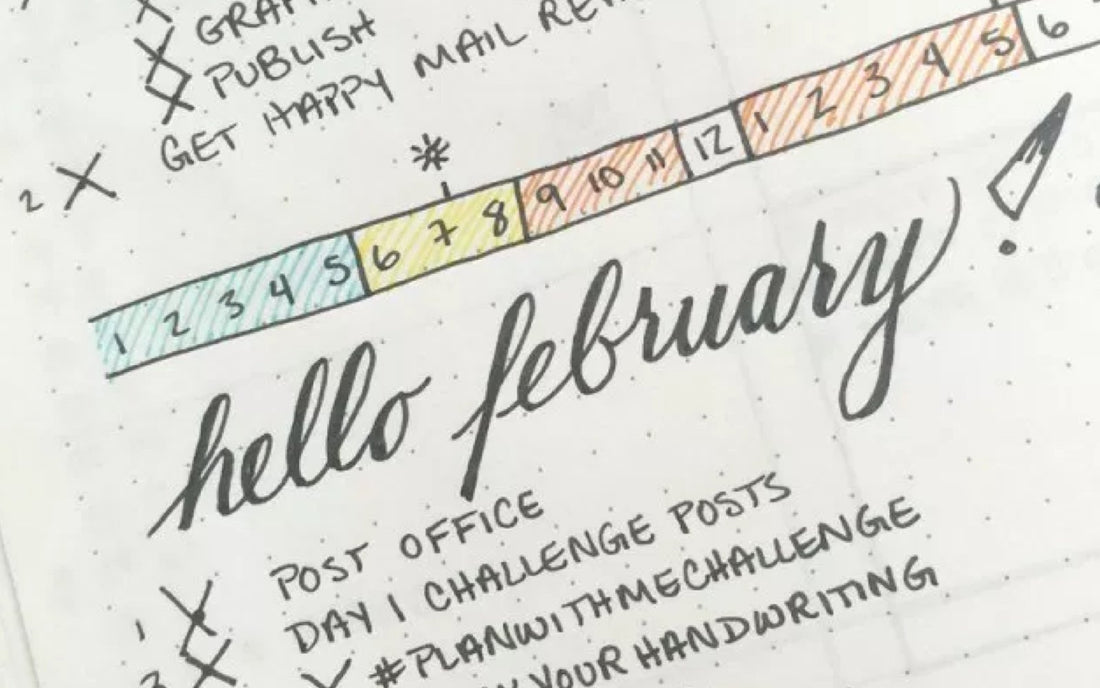 PUBLISH
GET HAPPY MAIL
2 X
*
1 2 3 4 5 6 7 8 9 10 11 12 1 2 3 4 5 6
hello february!
1 X POST OFFICE
DAY 1 CHALLENGE POSTS
#PLANWITHMECHALLENGE
YOUR HANDWRITING